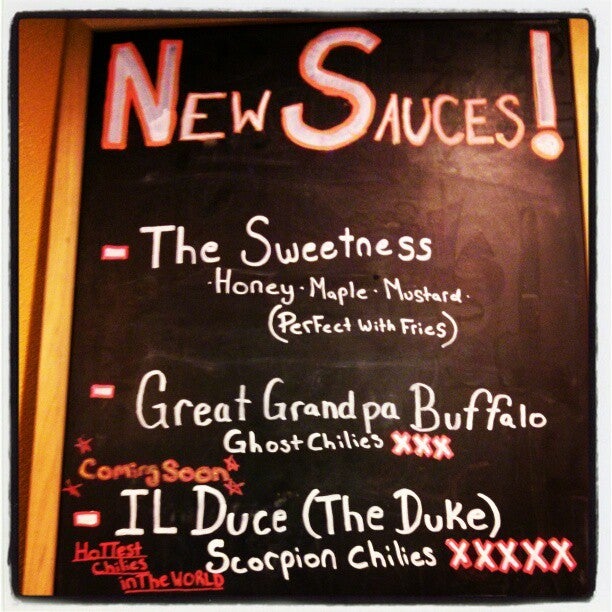 New Sauces!
- The Sweetness
· Honey · Maple · Mustard ·
(Perfect with Fries)
- Great Grandpa Buffalo
Ghost Chilies XXX
Coming Soon
- IL Duce (The Duke)
Scorpion Chilies XXXXX
Hottest
Chilies
in The WORLD